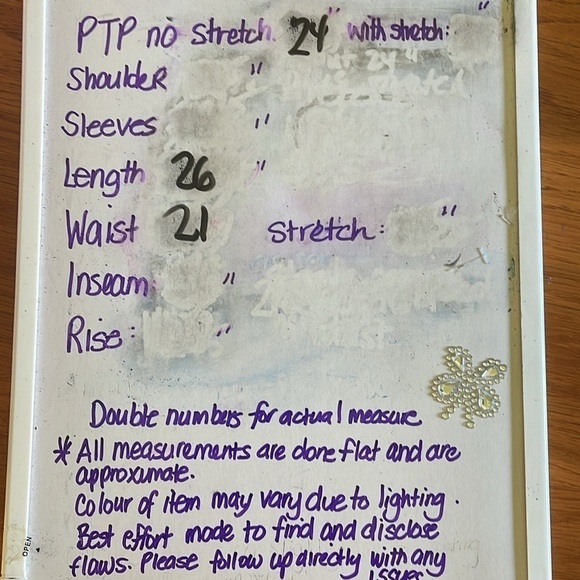 PTP no stretch 24" with stretch: "
Shoulder "
Sleeves "
Length 26 "
Waist 21 Stretch: "
Inseam: "
Rise: "
Double numbers for actual measure
* All measurements are done flat and are
approximate.
Colour of item may vary due to lighting.
Best effort made to find and disclose
flaws. Please follow up directly with any
issues
OPEN